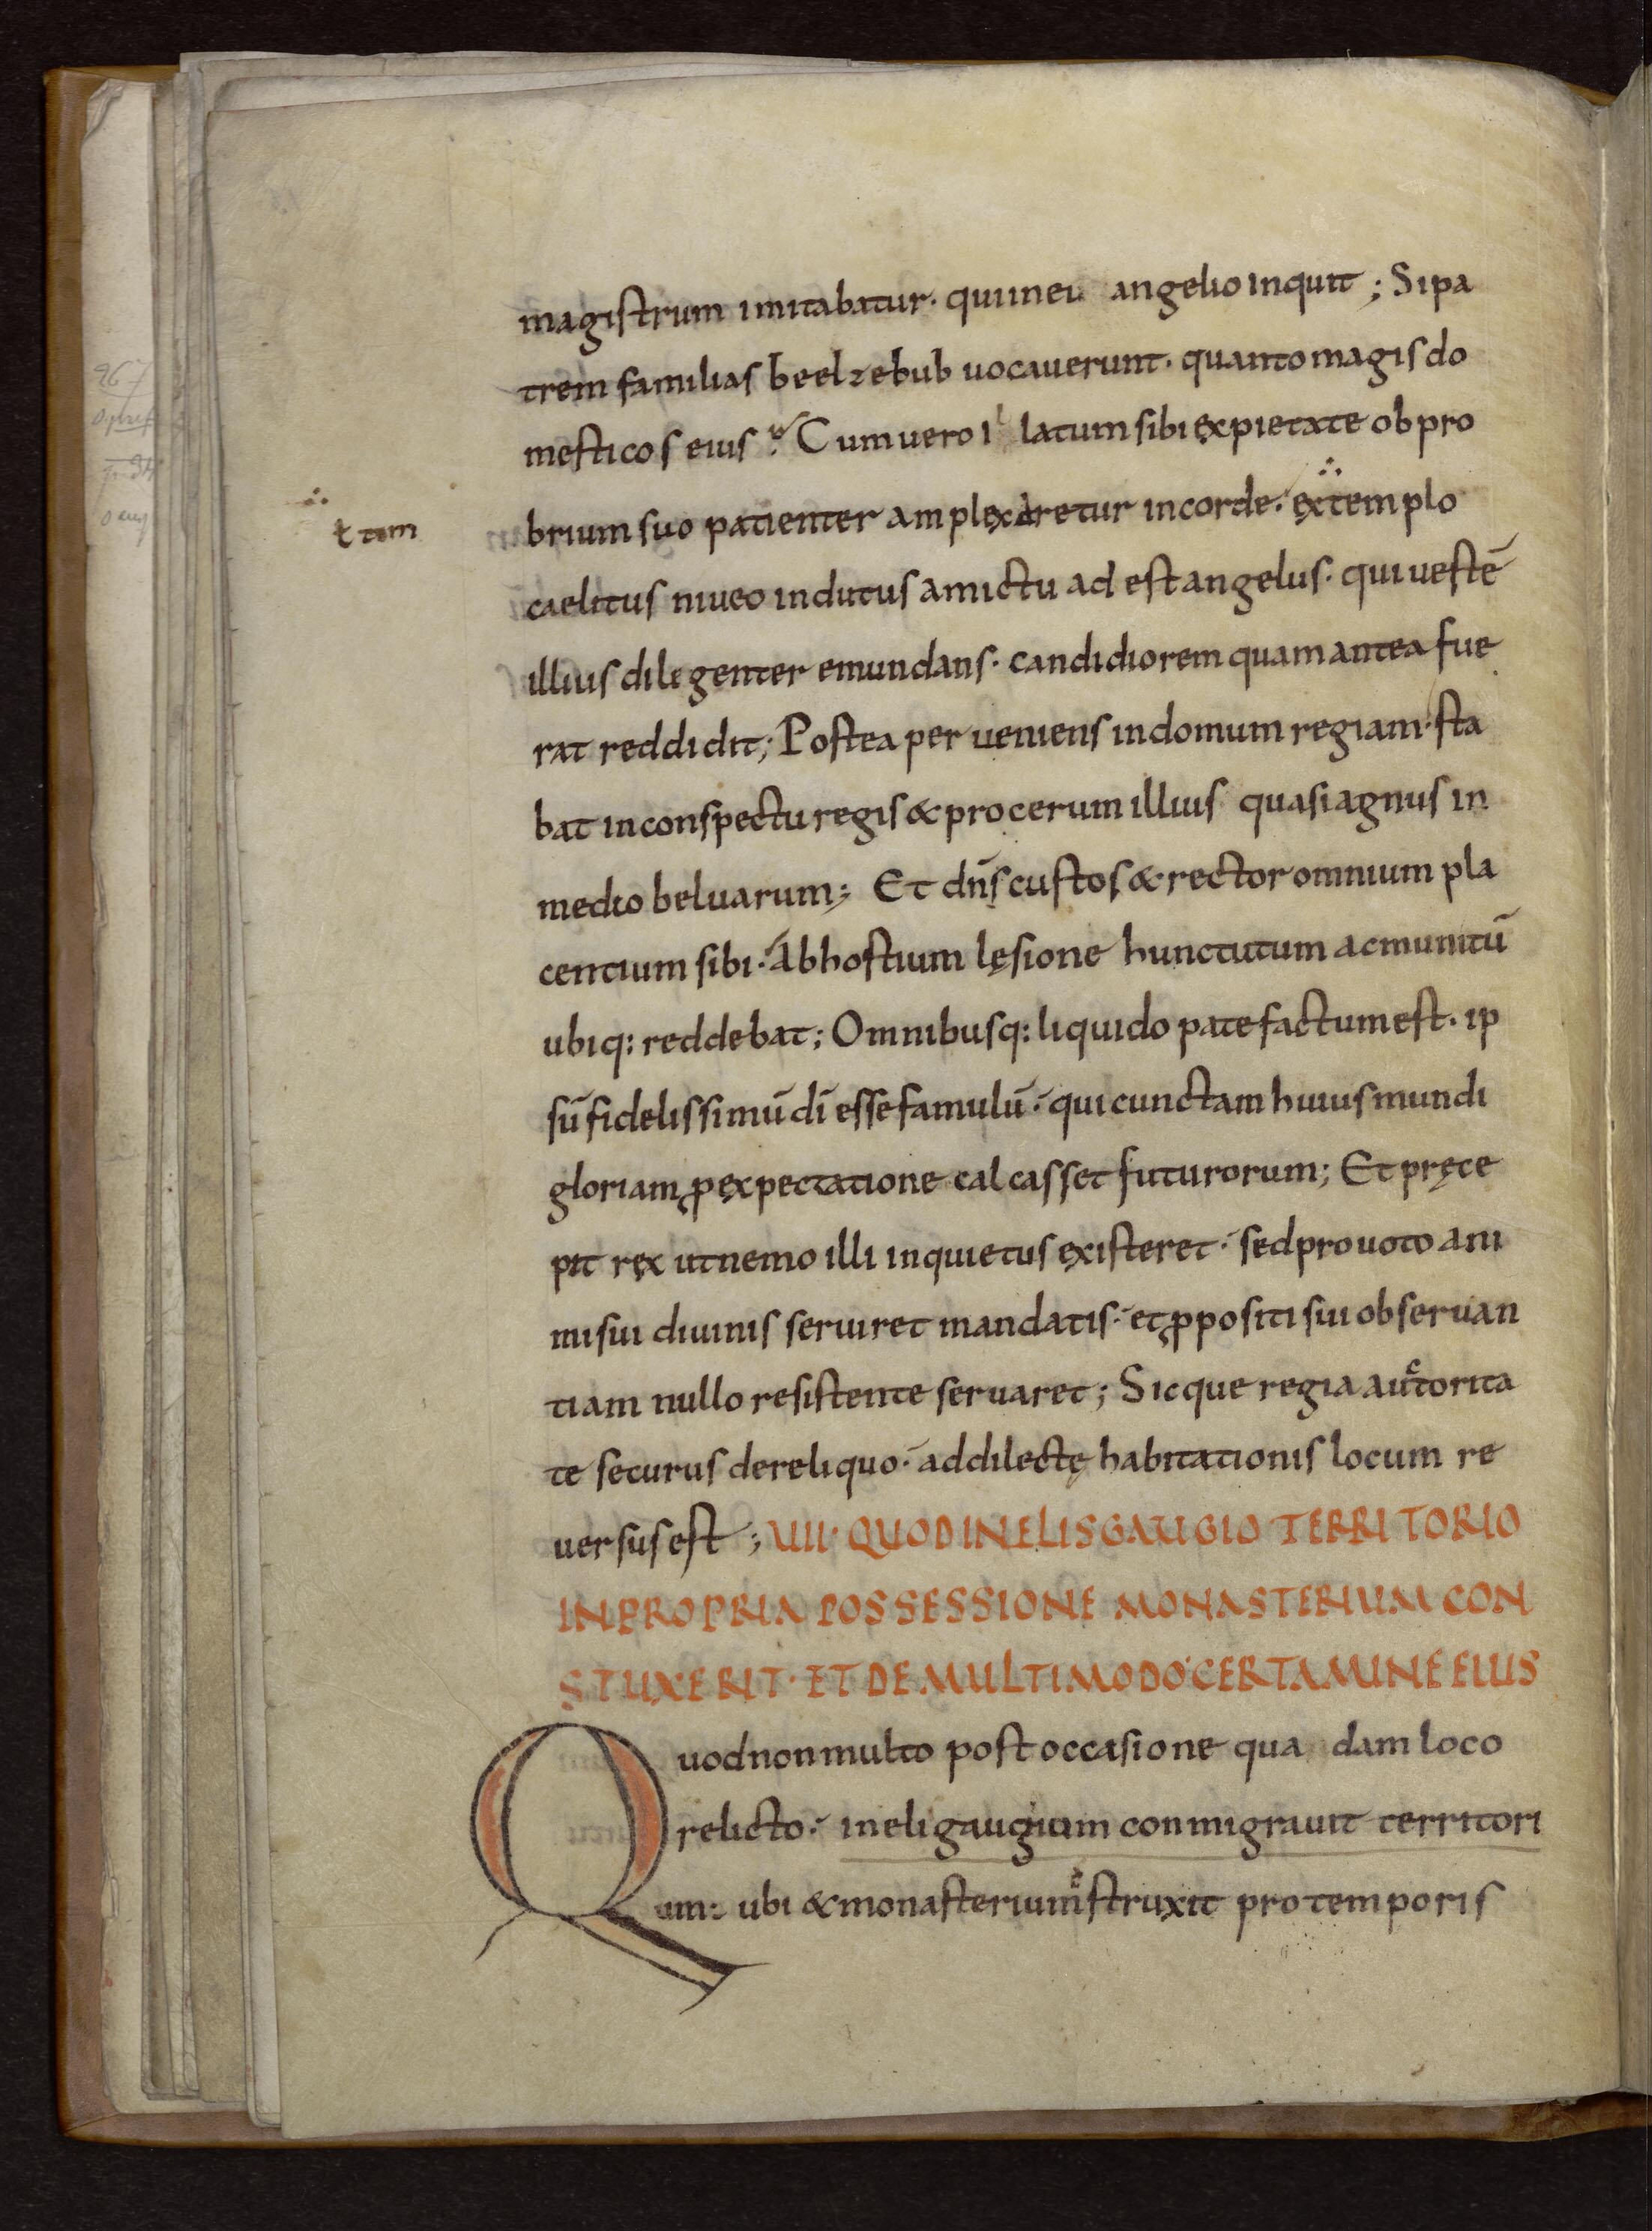 magistrum imitabatur· qui in eu angelio inquit ; Si pa
trem familias beelzebub uocauerunt· quanto magis do
mesticos eius? Cum uero il latum sibi ex pietate obpro
ł tem
brium suo patienter amplexaretur in corde· extemplo
caelitus niueo indutus amictu ad est angelus· qui uestē
illius diligenter emundans· candidiorem quam antea fue
rat reddidit; Postea per ueniens in domum regiam· sta
bat in conspectu regis & procerum illius quasi agnus in
medio beluarum; Et dn̄s custos & rector omnium pla
centium sibi· Ab hostium lęsione hunc tutum ac munitū
ubiq: reddebat; Omnibusq: liquido patefactum est· ip
sū fidelissimū dī esse famulū· qui cunctam huius mundi
gloriam ꝓ expectatione calcasset futurorum; Et pręce
pit rex ut nemo illi inquietus existeret· sed pro uoto ani
mi sui diuinis seruiret mandatis· et ꝓpositi sui obseruan
tiam nullo resistente seruaret; Sicque regia auctorita
te securus de reliquo· ad dilectę habitationis locum re
uersus est ; UII· QUOD IN ELISGAUGIO TERRITORIO
IN PROPRIA POSSESSIONE MONASTERIUM CON
STUXERIT· ET DE MULTIMODO CERTAMINE EIUS
Quod non multo post occasione qua dam loco
relicto· in eligaugium conmigrauit territori
um: ubi & monasterium struxit pro temporis